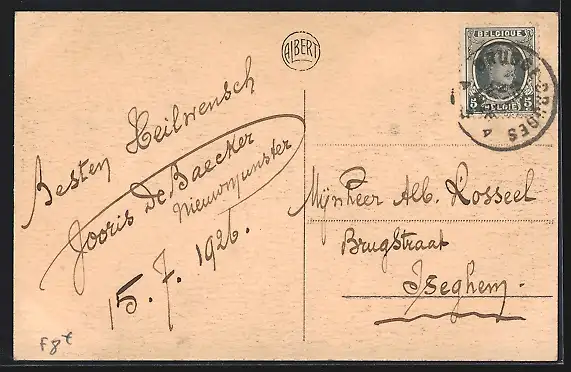 ALBERT
BELGIQUE
5 BELGIË 5
BRUGGE BRUGES
4
Besten Heilwensch
Jooris De Baecker
Nieuwmunster
15.7.1926.
Mijnheer Alb. Rosseel
Brugstraat
Iseghem.
F8t